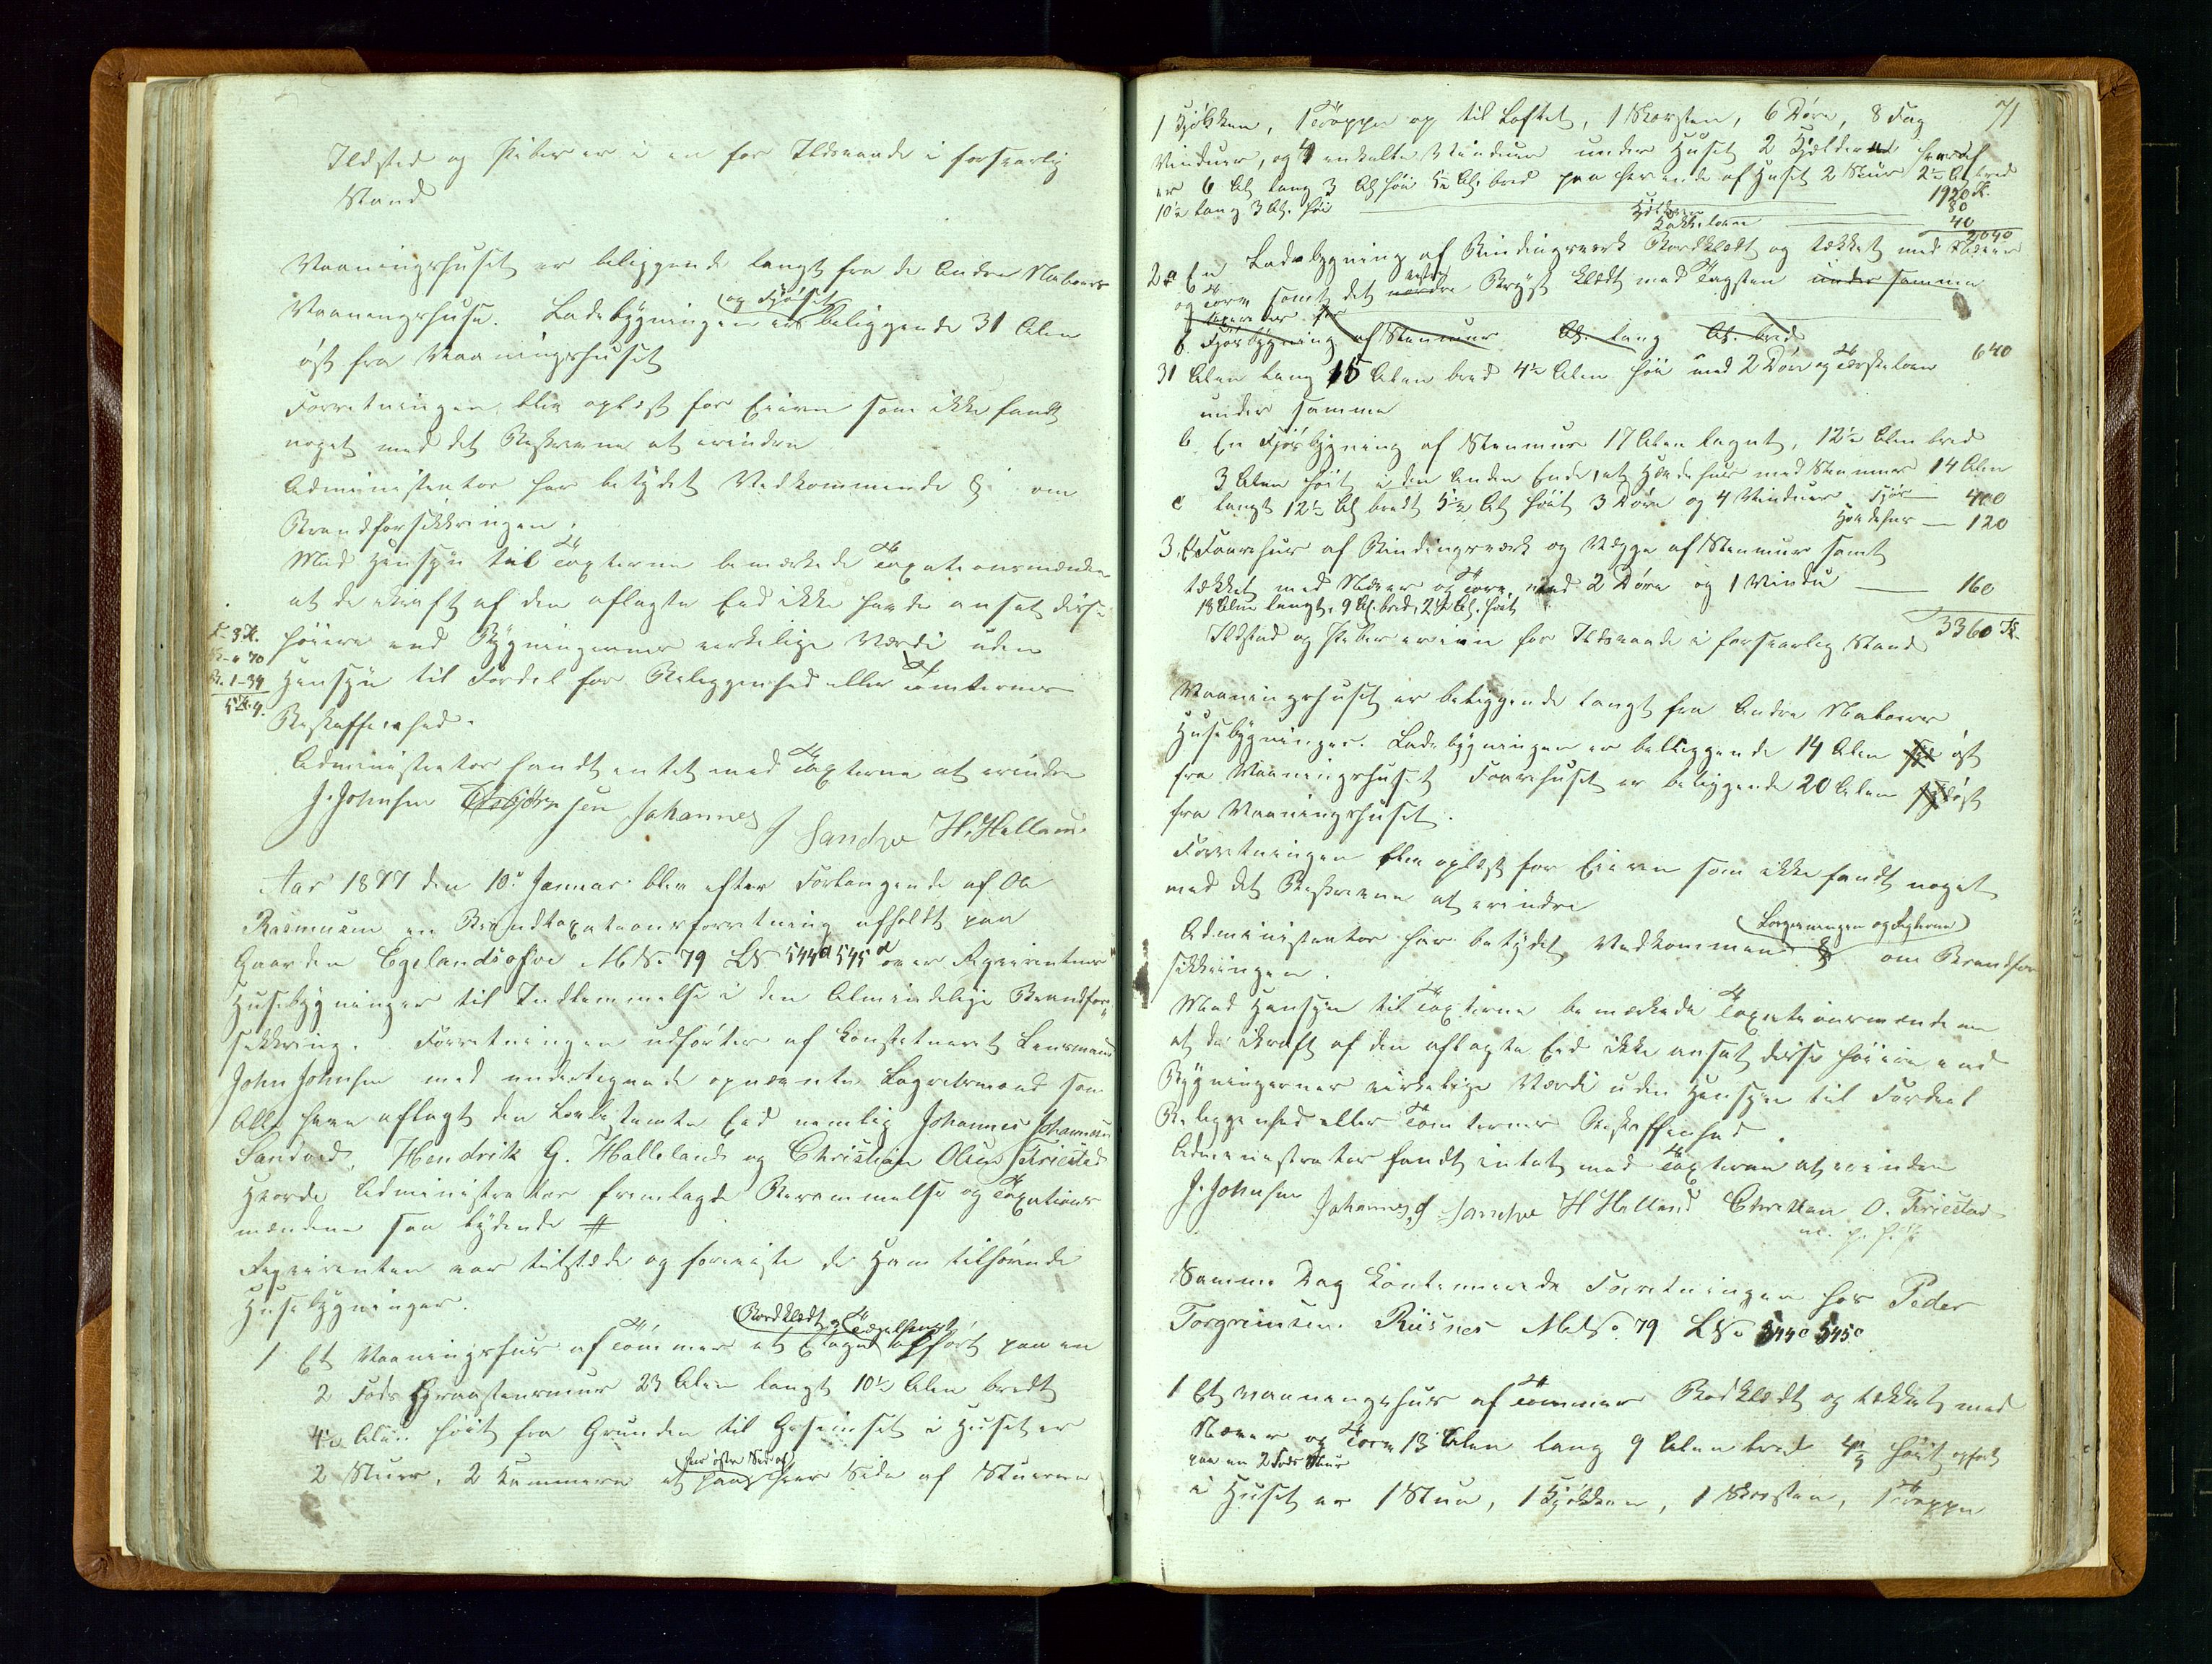 Ildsted og Piber er i en for Ildsvaade i forsvarlig
Stand
Vaaningshuset er beliggende langt fra de Andre Naboers
Vaaningshuse. Ladebygningen og Fjøset er beliggende 31 Alen
øst fra Vaaningshuset
Forretningen blev oplæst for Eieren som ikke fandt
noget med det Beskrevne at erindre
Administrator har betydet Vedkommende § om
Brandforsikkringen.
Med Hensyn til Taxterne bemærkede Taxationsmændene
at de i kraft af den aflagte Eed ikke havde ansat disse
høiere end Bygningernes virkelige Værdi uden
Hensyn til Fordel for Beleggenhed eller Tomternes
Beskaffenhed.
1-34
Administrator fandt intet med Taxterne at erindre
J. Johnsen Asbjørnsen Johannes J Sandve H. Helland
Aar 1877 den 10de Januar blev efter Forlangende af Ole
Rasmusen en Brandtaxationsforretning afholdt paa
Gaarden Egelandsofve M.No 79 LN 544d 545d over Reqvirentens
Husebygninger til Indlemmelse i den Almindelige Brandfor-
sikkring. Forretningen udførtes af Konstitueret Lensmand
John Johnsen med undertegnede opnævnte Lagrettemænd som
Alle have aflagt den Lovbestemte Eed nemlig Johannes Johannesen
Sandved, Hendrik G. Helleland og Christian Olsen Friestad
Hvorde Administrator fremlagde Berammelse og Taxations
mændene saa lydende #
Reqvirenten var tilstede og foreviste de Ham tilhørende
Husebygninger.
1 Et Vaaningshus af Tømmer Bordklædt og Tægelhængt et Etage opført paa en
2 Fods Graastensmuur 23 Alen langt 10½ Alen bredt
4½ Alen høit fra Grunden til Gesimset i Huset er
2 Stuer, 2 Kammere et paa hver Side af Stuerne
71
1 Kjøkken, 1 Trappe op til Loftet, 1 Skorsten, 6 Døre, 8 Fag
Vinduer, og 4 enkelte Vinduer under Huset 2 Kjældere hvoraf
er 6 Al lang 3 Al høi 5½ Al. bred paa hver ende af Huset 2 Skur 2½ Al bred
10½ lang 3 Al. høi 1920
Kjelderen 80
Kakkelovne 40
2040
2 a En Ladebygning af Bindingsværk Bordklædt og tækket med Næver
og Torv samt det vestre Bryst klædt med Tagsten under samme
b. Fjøsbygning af Stenmuur Al. lang Al. bred
31 Alen lang 15 Alen bred 4½ Alen høi med 2 Døre og Tærskeloen 640
under samme
b En Fjøsbygning af Stenmuur 17 Alen langt, 12½ Alen bred
3 Alen høit i den Anden Ende, et Hældehus med Stenmuur 14 Alen
c langt 12½ Al bredt 5½ Al høit 3 Døre og 4 Vinduer Fjøs 400
Hældehus — 120
3. Et Faarehus af Bindingsværk og Vægge af Stenmuur samt
tækket med Næver og Torv, med 2 Døre og 1 Vindu — 160
18 Alen langt, 9 Al. bred, 2½ Al. høit
Ildsted og Piber ere i en for Ildsvaade i forsvarlig Stand 3360 Kr
Vaaningshuset er beliggende langt fra Andre Naboers
Husebygninger. Ladebygningen er beliggende 14 Alen øst
fra Vaaningshuset Faarehuset er beliggende 20 Alen øst
fra Vaaningshuset.
Forretningen blev oplæst for Eieren som ikke fandt noget
med det Beskrevne at erindre
Administrator har betydet Vedkommende § om Brandfor
sikkringen.
Med Hensyn til Taxterne bemærkede Taxationsmændene
at de i kraft af den aflagte Eed ikke ansat disse høiere end
Bygningernes virkelige Værdi uden Hensyn til Fordeel
Beleggenhed eller Tomternes Beskaffenhed.
Administrator fandt intet med Taxterne at erindre
J. Johnsen Johannes J Sandve H Helland Christian O. Friestad
m. p. P.
Samme Dag Kontinuerede Forretningen hos Peder
Torgrimsen Risnes M.No 79 LNo 544c 545c
1 Et Vaaningshus af Tømmer Bordklædt og tækket med
Næver og Torv 13 Alen lang 9 Alen bred 4½ høit opført
paa en 2 Fods Muur
i Huset er 1 Stue, 1 Kjøkken, 1 Skorsten, 1 Trappe